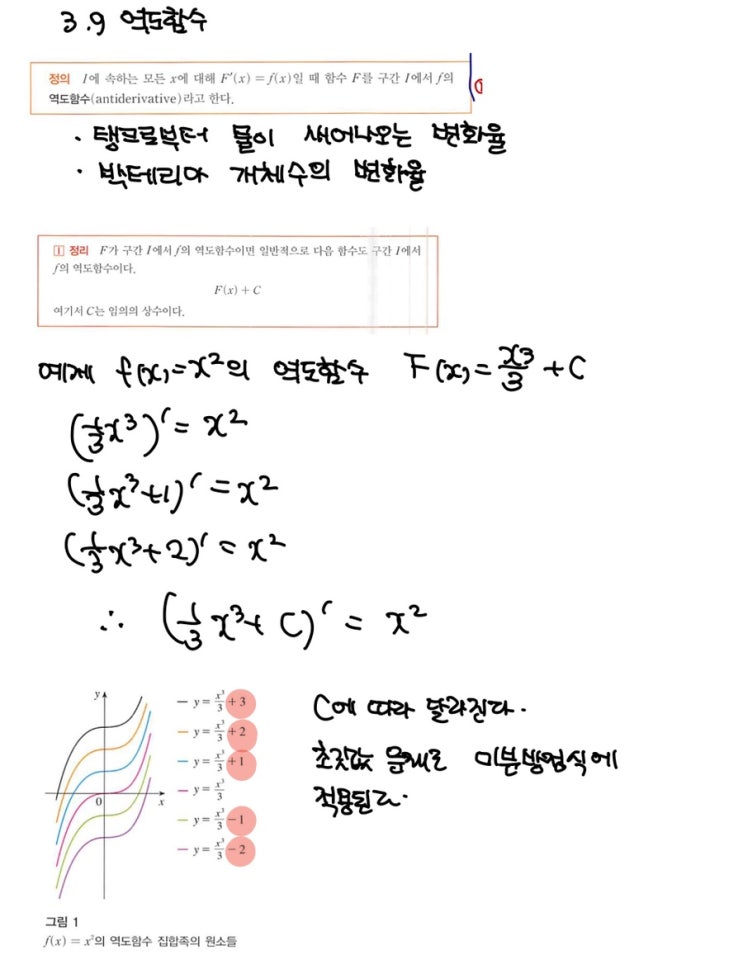 3.9 역도함수
정의 I에 속하는 모든 x에 대해 F′(x) = f(x)일 때 함수 F를 구간 I에서 f의
역도함수(antiderivative)라고 한다.
· 탱크로부터 물이 새어나오는 변화율
· 박테리아 개체수의 변화율
1 정리 F가 구간 I에서 f의 역도함수이면 일반적으로 다음 함수도 구간 I에서
f의 역도함수이다.
F(x) + C
여기서 C는 임의의 상수이다.
예제 f(x)=x²의 역도함수 F(x)=x³/3+C
(1/3x³)′=x²
(1/3x³+1)′=x²
(1/3x³+2)′=x²
∴ (1/3x³+C)′=x²
y
0
x
y = x³/3 + 3
y = x³/3 + 2
y = x³/3 + 1
y = x³/3
y = x³/3 − 1
y = x³/3 − 2
C에 따라 달라진다.
초깃값 문제로 미분방정식에
적용된다.
그림 1
f(x) = x²의 역도함수 집합족의 원소들